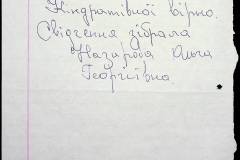 Кіндратівної вірно.
Свідчення зібрала
Назарова Ольга
Георгіївна